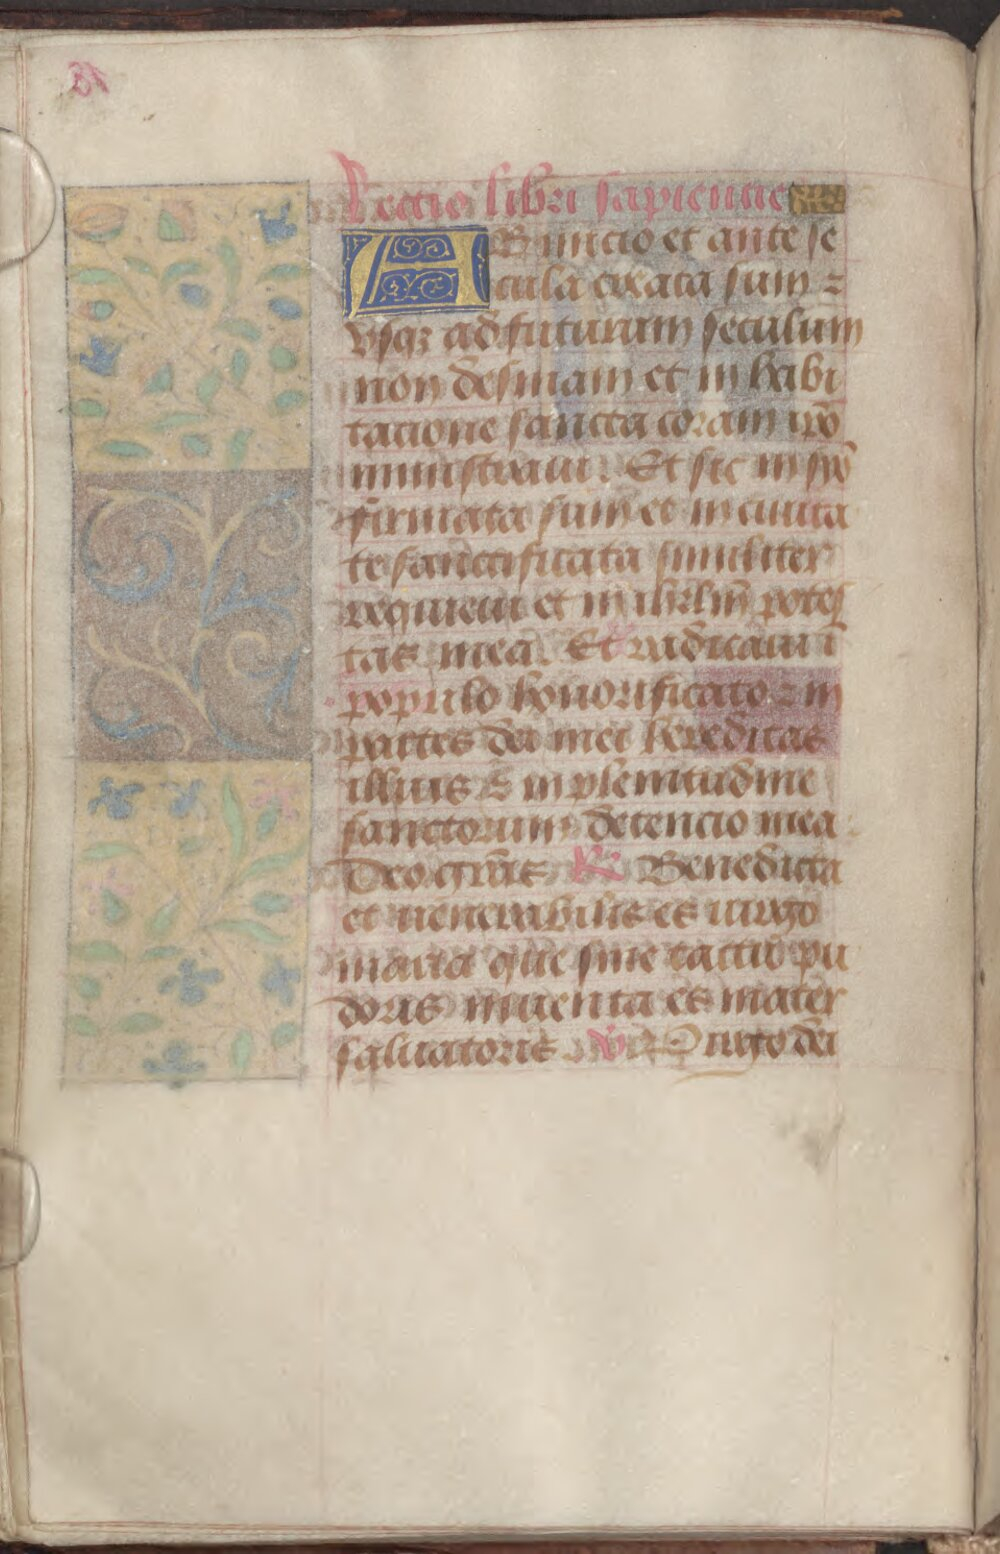 Lectio libri sapientie
AB inicio et ante se
cula creata sum ⁊
vsqꝫ ad futurum seculum
non desinam et in habi
tacione sancta coram ip̄o
ministraui. Et sic in syō
firmata sum et in ciuita
te sanctificata similiter
requieui et in ihrl̄m potes
tas mea. Et radicaui ī
populo honorificato ⁊ in
partes dei mei hereditas
illius ⁊ in plenitudine
sanctorum detencio mea
Deo gr̄as R̷ Benedicta
et uenerabilis es uirgo
maria que sine tactu pu
doris inuenta es mater
saluatoris . V̷ Uirgo dei